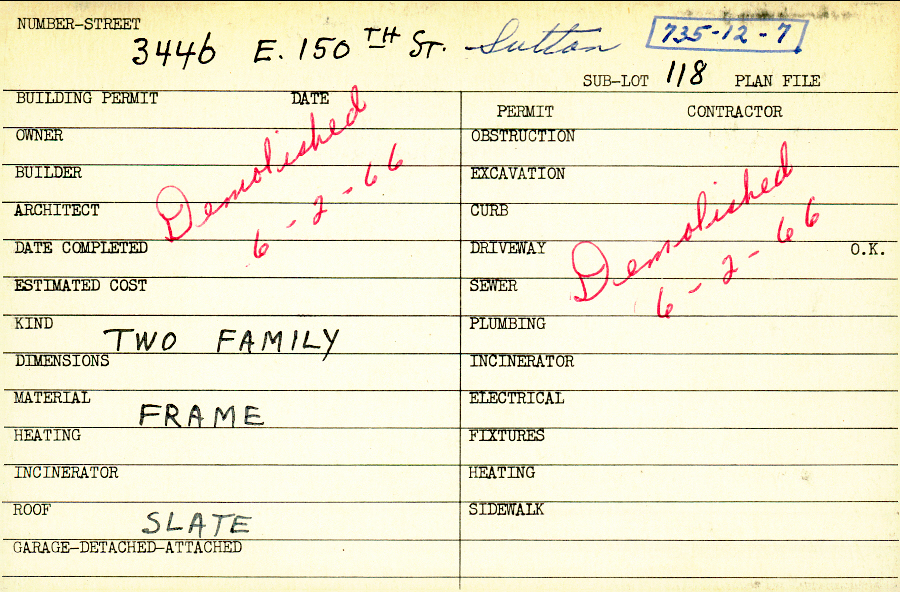 NUMBER-STREET
3446 E. 150 TH ST. Sutton 735-12-7
SUB-LOT 118 PLAN FILE
BUILDING PERMIT DATE
PERMIT CONTRACTOR
OWNER
OBSTRUCTION
BUILDER
EXCAVATION
ARCHITECT
CURB
Demolished
6-2-66
Demolished
6-2-66
DATE COMPLETED
DRIVEWAY O.K.
ESTIMATED COST
SEWER
KIND TWO FAMILY
PLUMBING
DIMENSIONS
INCINERATOR
MATERIAL FRAME
ELECTRICAL
HEATING
FIXTURES
INCINERATOR
HEATING
ROOF SLATE
SIDEWALK
GARAGE-DETACHED-ATTACHED